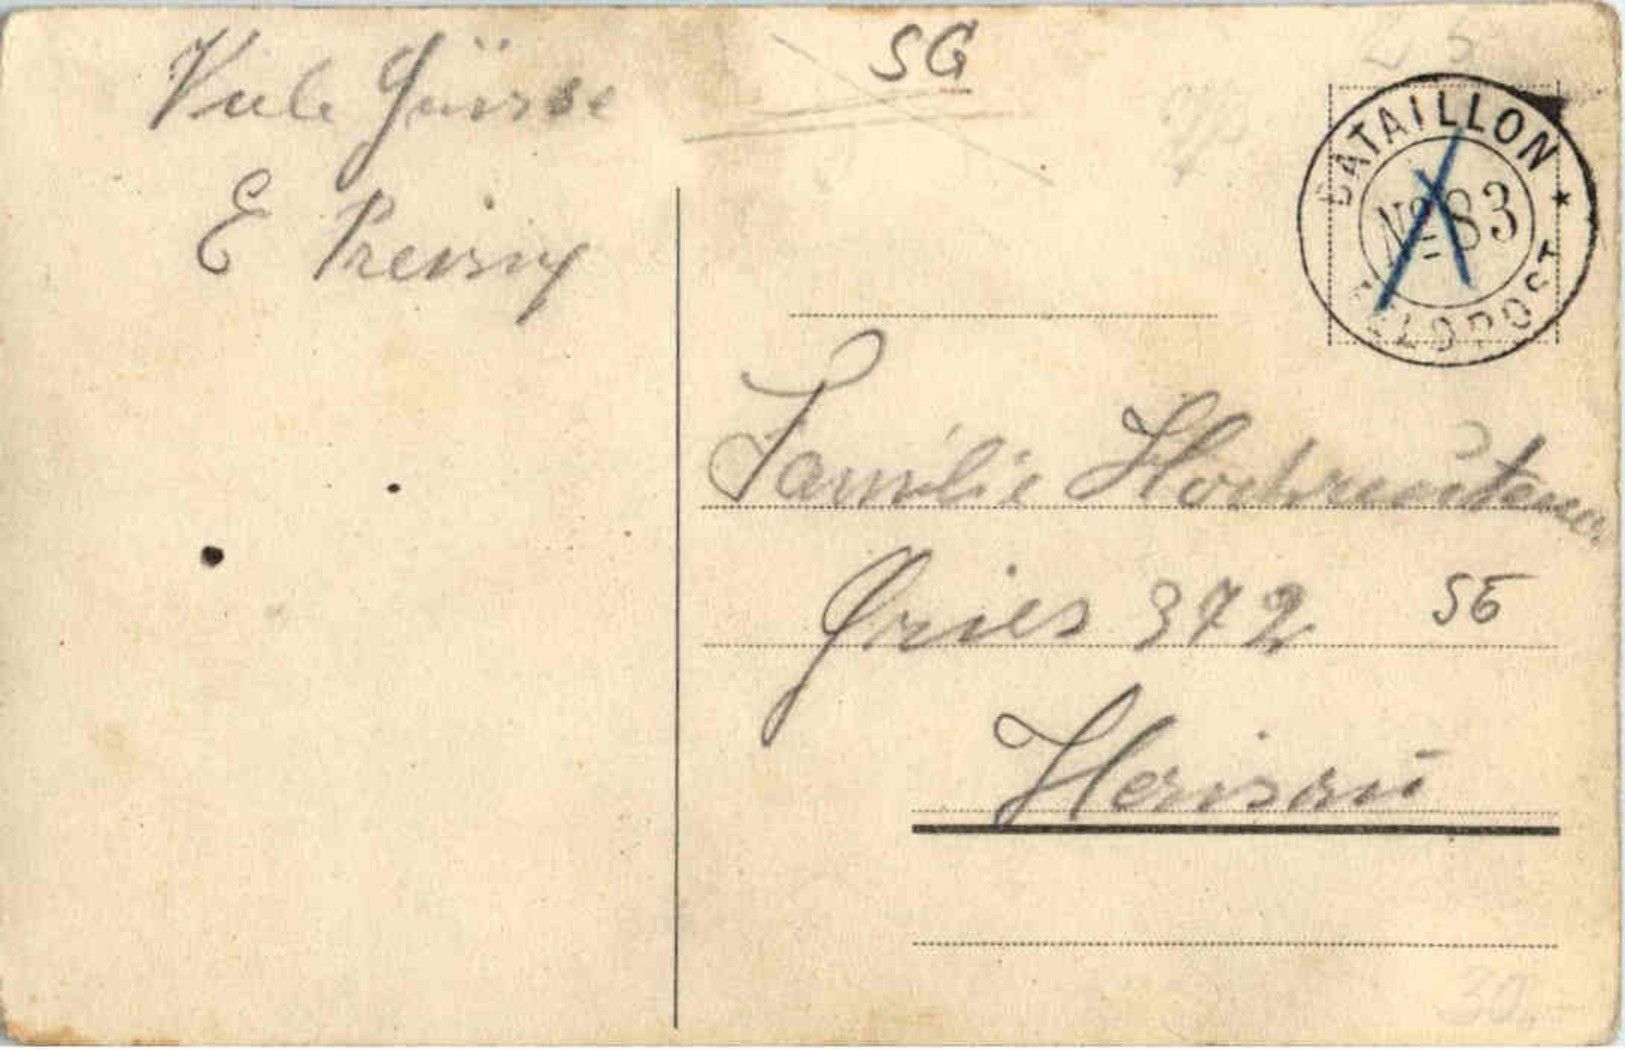 Viele Grüsse
E Preisig
SG
BATAILLON
No 83
FELDPOST
Familie Hochreutener
Gries 372
SE
Herisau
30.-